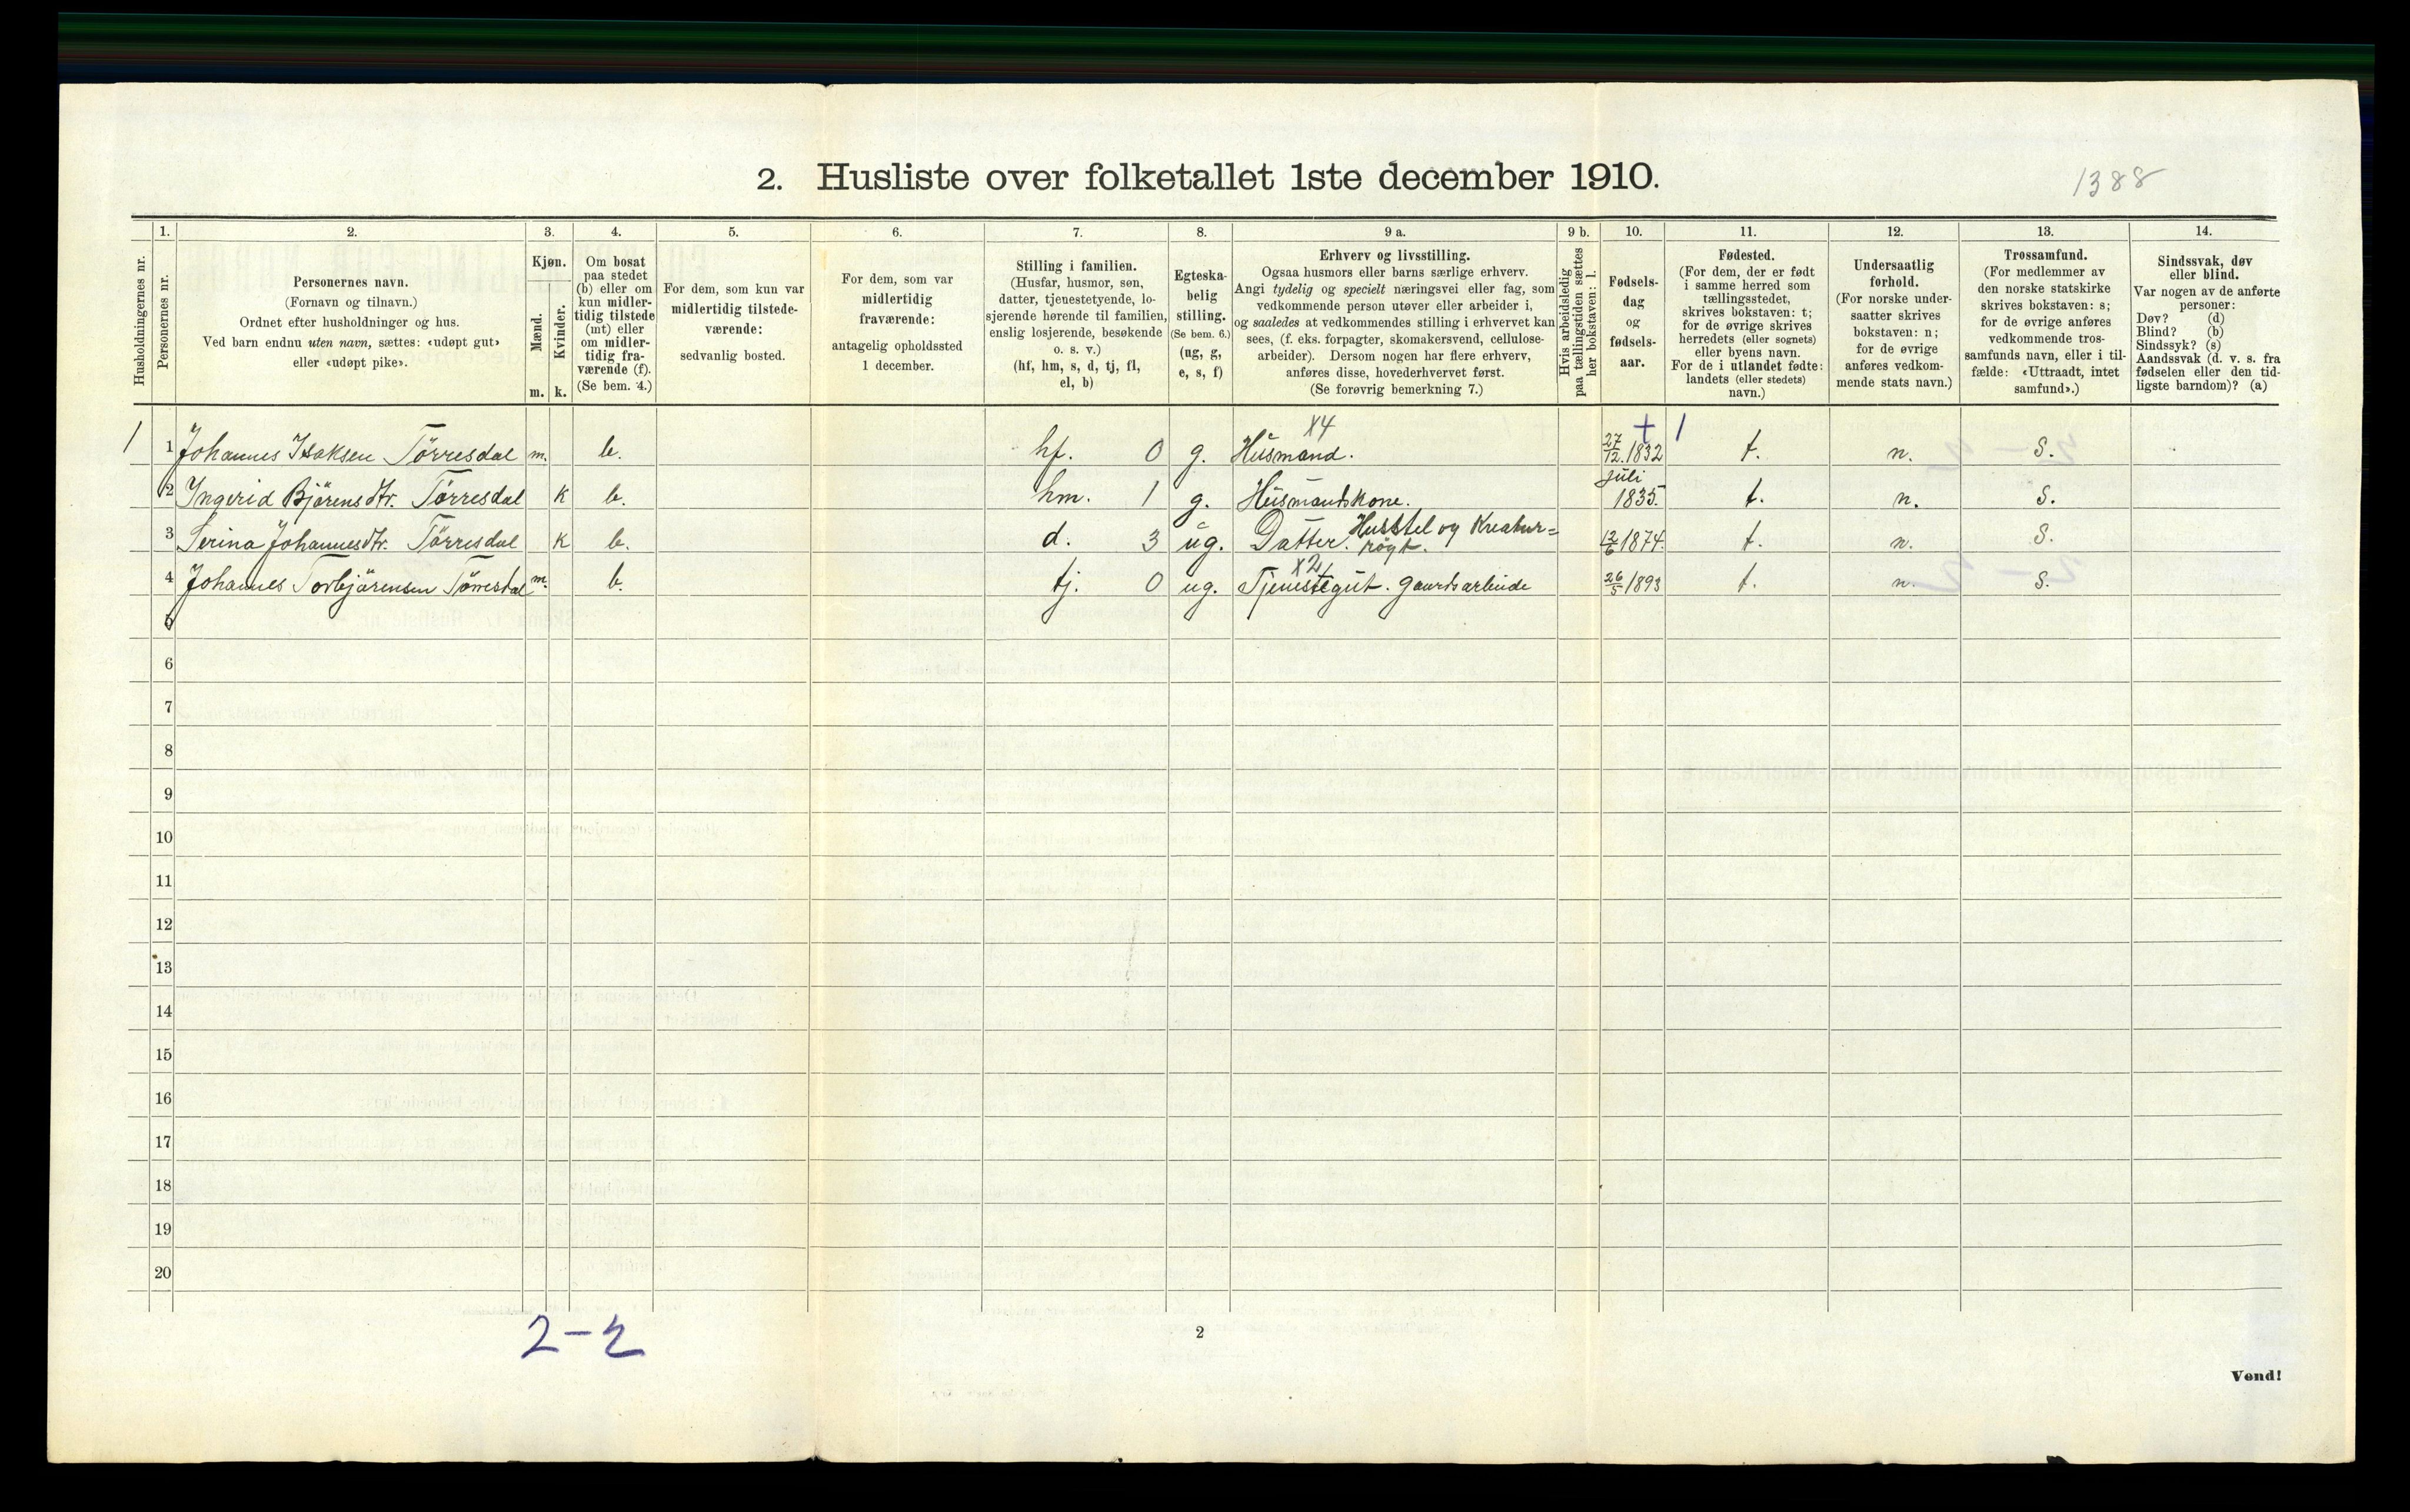 2. Husliste over folketallet 1ste december 1910.
1388
Husholdningernes nr.
1.
Personernes nr.
2.
Personernes navn.
(Fornavn og tilnavn.)
Ordnet efter husholdninger og hus.
Ved barn endnu uten navn, sættes: «udøpt gut»
eller «udøpt pike».
3.
Kjøn.
Mænd. Kvinder.
m. k.
4.
Om bosat
paa stedet
(b) eller om
kun midler-
tidig tilstede
(mt) eller
om midler-
tidig fra-
værende (f).
(Se bem. 4.)
5.
For dem, som kun var
midlertidig tilstede-
værende:
sedvanlig bosted.
6.
For dem, som var
midlertidig
fraværende:
antagelig opholdssted
1 december.
7.
Stilling i familien.
(Husfar, husmor, søn,
datter, tjenestetyende, lo-
sjerende hørende til familien,
enslig losjerende, besøkende
o. s. v.)
(hf, hm, s, d, tj, fl,
el, b)
8.
Egteska-
belig
stilling.
(Se bem. 6.)
(ug, g,
e, s, f)
9 a.
Erhverv og livsstilling.
Ogsaa husmors eller barns særlige erhverv.
Angi tydelig og specielt næringsvei eller fag, som
vedkommende person utøver eller arbeider i,
og saaledes at vedkommendes stilling i erhvervet kan
sees, (f. eks. forpagter, skomakersvend, cellulose-
arbeider). Dersom nogen har flere erhverv,
anføres disse, hovederhvervet først.
(Se forøvrig bemerkning 7.)
9 b.
Hvis arbeidsledig
paa tællingstiden sættes
her bokstaven: l.
10.
Fødsels-
dag
og
fødsels-
aar.
11.
Fødested.
(For dem, der er født
i samme herred som
tællingsstedet,
skrives bokstaven: t;
for de øvrige skrives
herredets (eller sognets)
eller byens navn.
For de i utlandet fødte:
landets (eller stedets)
navn.)
12.
Undersaatlig
forhold.
(For norske under-
saatter skrives
bokstaven: n;
for de øvrige
anføres vedkom-
mende stats navn.)
13.
Trossamfund.
(For medlemmer av
den norske statskirke
skrives bokstaven: s;
for de øvrige anføres
vedkommende tros-
samfunds navn, eller i til-
fælde: «Uttraadt, intet
samfund».)
14.
Sindssvak, døv
eller blind.
Var nogen av de anførte
personer:
Døv? (d)
Blind? (b)
Sindssyk? (s)
Aandssvak (d. v. s. fra
fødselen eller den tid-
ligste barndom)? (a)
X4 + 1
1 1 Johannes Isaksen Törresdal m. b. hf. 0 g. Husmand. 27/12.1832 t. n. S.
2 Ingerid Bjørensdtr. Törresdal k b. hm. 1 g. Husmandskone. Juli 1835. t. n. S.
3 Serina Johannesdtr. Törresdal k b. d. 3 ug. Datter. Husstel og Kreatur=
røgt. 12/6 1874. t. n. S.
X2
4 Johannes Torbjørensen Törresdal m. b. tj. 0 ug. Tjenestegut. Gaardsarbeide 26/5 1893 t. n. S.
5
6
7
8
9
10
11
12
13
14
15
16
17
18
19
20
2-2
2
Vend!